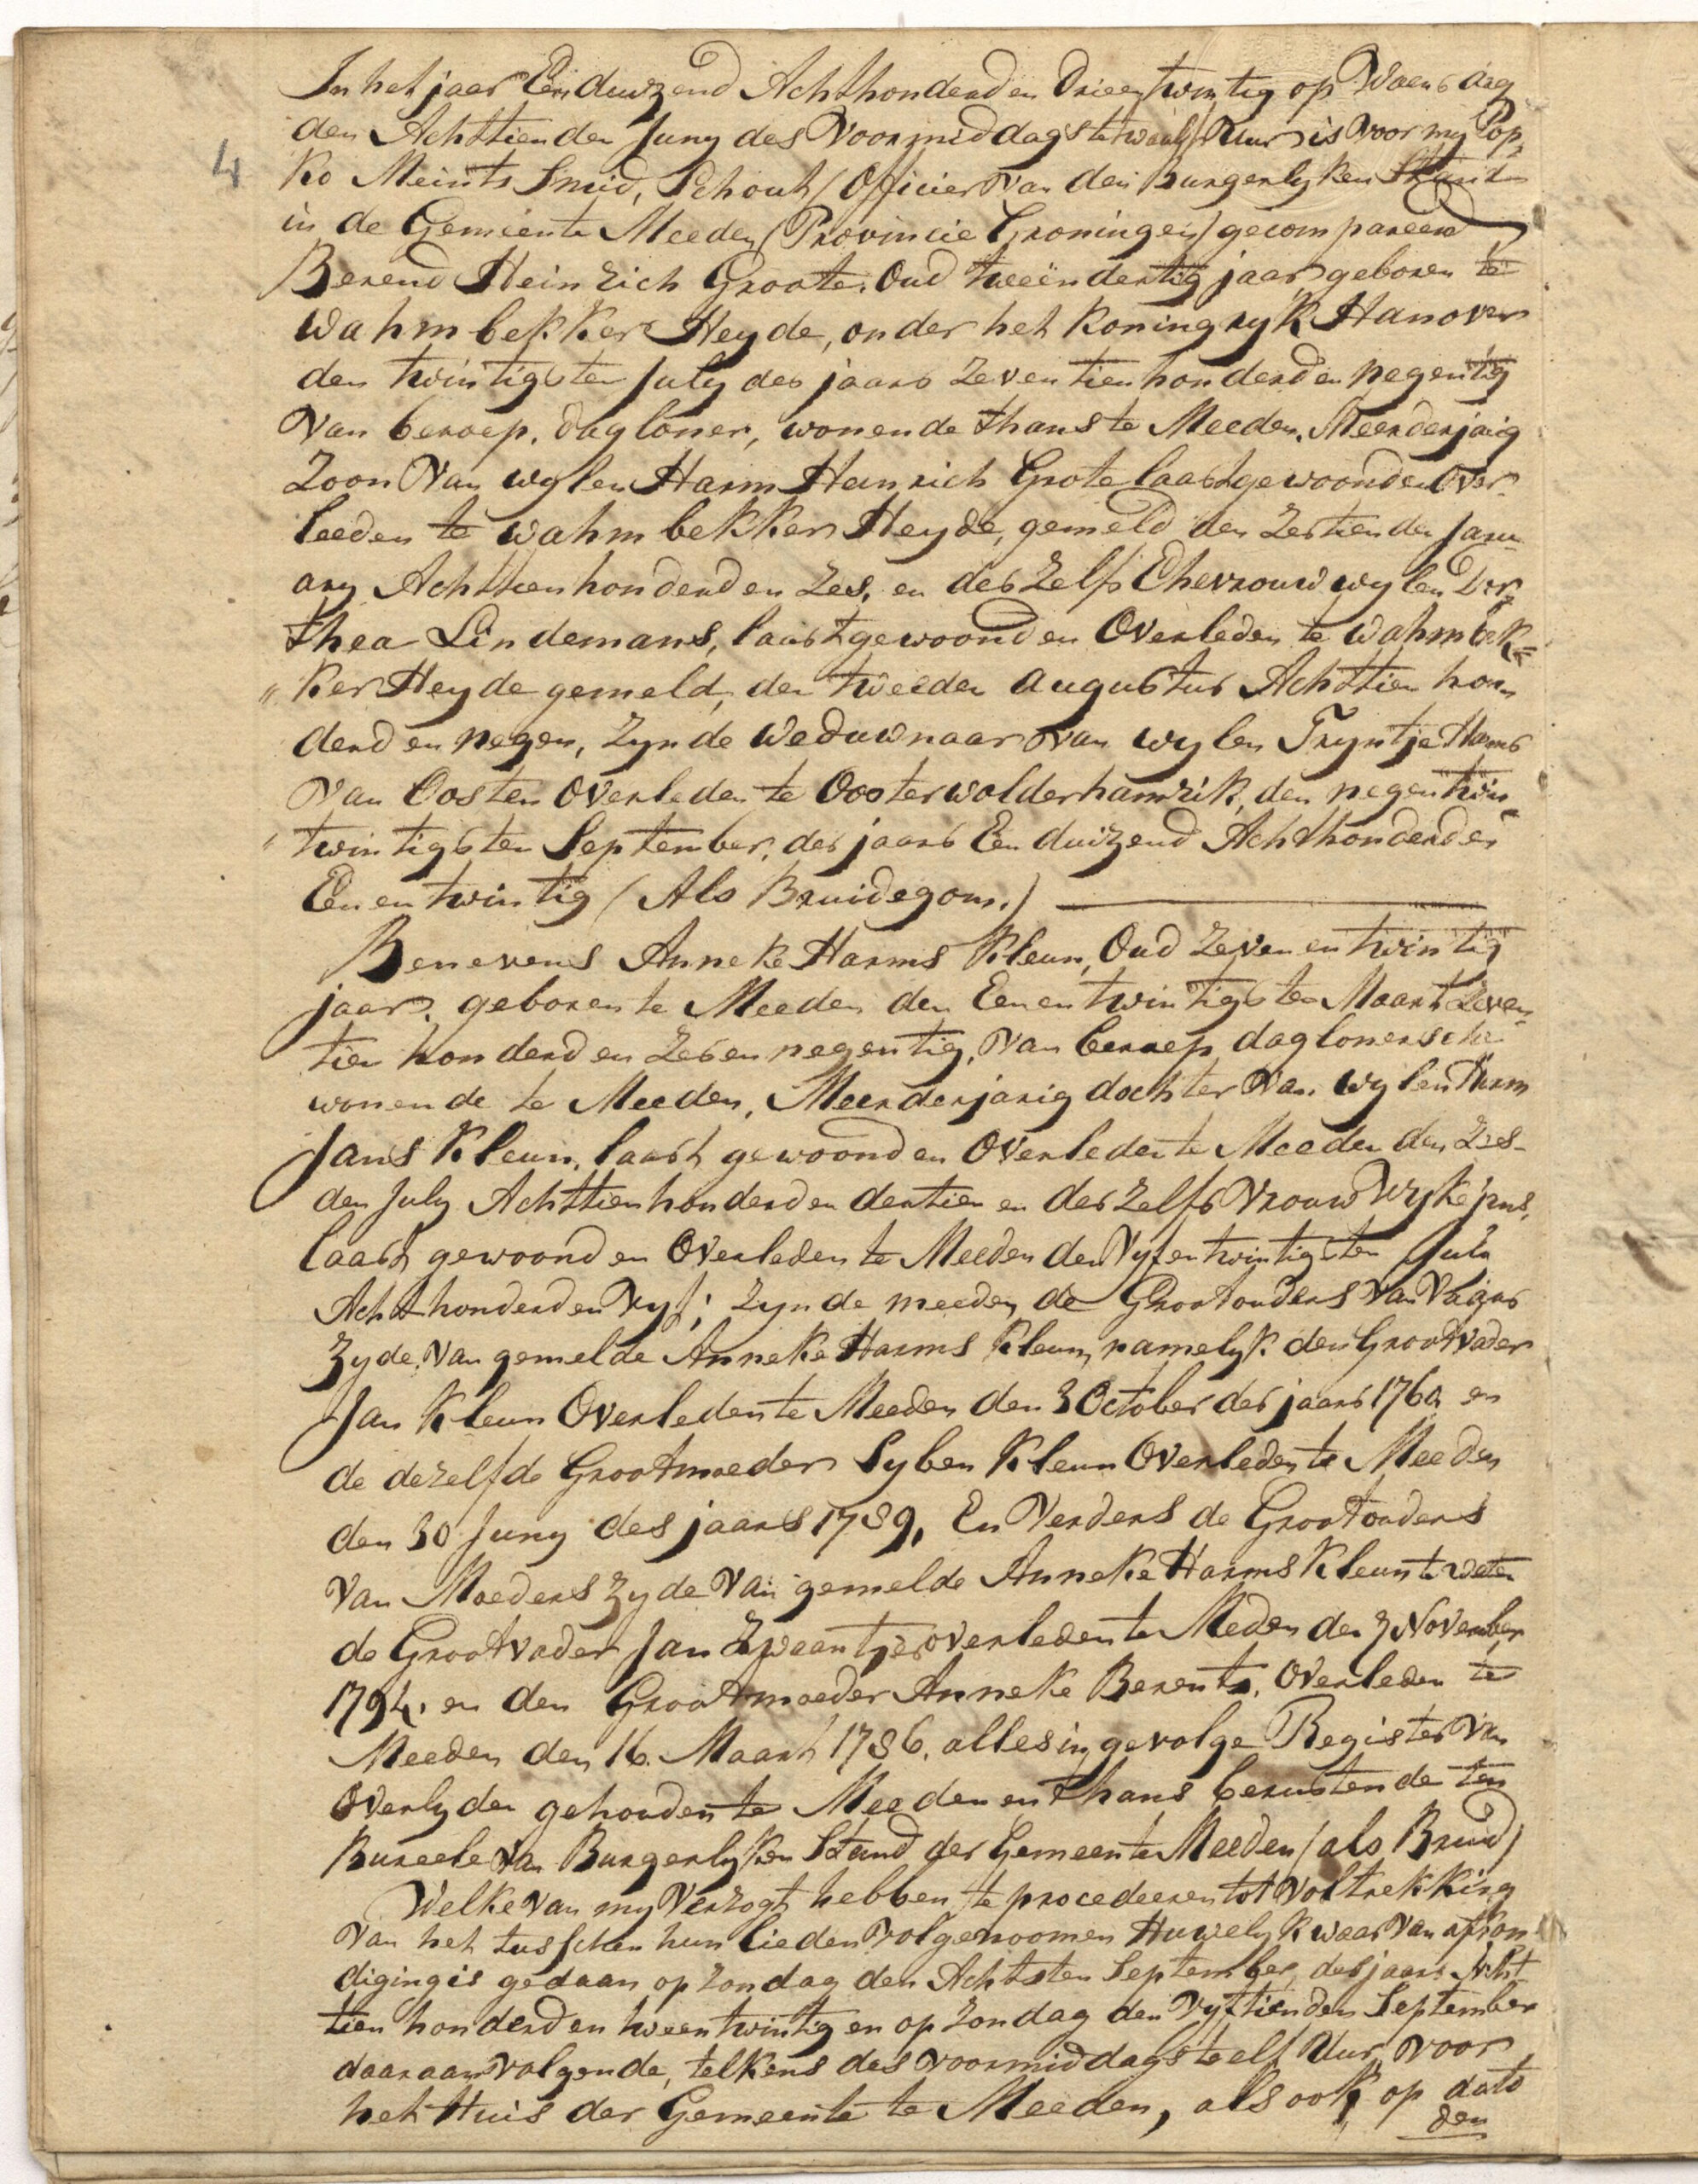 In het jaar Eenduizend Achthonderd en Drieentwintig op Woensdag
4
den Achttienden Juny des Voormiddags te twaalf Uur is voor my Pop„
ko Meints Smid, Schout / Officier van den Burgerlyken Stand
in de Gemeente Meeden (Provincie Groningen) gecompareerd
Berend Heinrich Groote. Oud tweeëndertig jaar geboren te
Wahmbekker Heyde, onder het Koningryk Hanover
den twintigsten July des jaars Zeventienhonderd en negentig
Van beroep, dagloner, wonende thans te Meeden. Meerderjarig
Zoon Van wylen Harm Heinrich Grote laast gewoond en Over-
leeden te Wahmbekker Heyde, gemeld den Zestienden Janu-
ary Achttienhonderd en Zes, en deszelfs Ehevrouw wylen Dor„
thea Lindemans, laast gewoond en Overleden te Wahmbek=
„ ker Heyde gemeld, den tweeden augustus Achttien hon„
derd en negen, Zynde Weduwnaar van wylen Tryntje Harms
Van Oosten Overleden te Oosterwolderhamrik, den negentwin„
" twintigsten September, des jaars Eenduizend Achthonderd en
Eenentwintig (Als Bruidegom.)
Benevens Anneke Harms Kleun, Oud Zevenentwintig
jaar, geboren te Meeden den Eenentwintigsten Maart Zeven„
tien honderd en Zesennegentig, Van beroep daglonersche
wonende te Meeden, Meerderjarig dochter Van wylen Harm
Jans Kleun, laast gewoond en Overleden te Meeden den Zes-
den July Achttienhonderd en dertien en deszelfs Vrouw Wyke jans,
laast gewoond en Overleden te Meeden den Vyfentwintigsten July
Achthonderd en Vyf; Zynde meeden de Grootouders van Vaders
Zyde, Van gemelde Anneke Harms Kleun, namelyk den Grootvader
Jan Kleun Overleden te Meeden den 3 October des jaars 1760 en
de dezelfde Grootmoeder Syben Kleun Overleden te Meeden
den 30 Juny des jaars 1789, En Verders de Grootouders
van Moeders Zyde Van gemelde Anneke Harms Kleun te weten
de Grootvader Jan Zwaantjes overleden te Meden den 3 November
1794. en den Grootmoeder Anneke Berents, Overleden te
Meeden den 16. Maart 1786. alles in gevolge Register van
Overlyden gehouden te Meeden en thans berustende ten
Bureele van Burgerlyken Stand der Gemeente Meeden (als Bruid)
Welke van my Verzogt hebben, te procedeeren tot Voltrekking
van het tusschen hun lieden Volgenoomen Huwelyk waar van afkon
diging is gedaan op Zondag den Achtsten September, des jaars Acht
tien honderd en tweentwintig en op Zondag den Vyftienden September
daaraanvolgende, telkens des voormiddags te elf Uur voor
het Huis der Gemeente te Meeden, als ook op dato
den